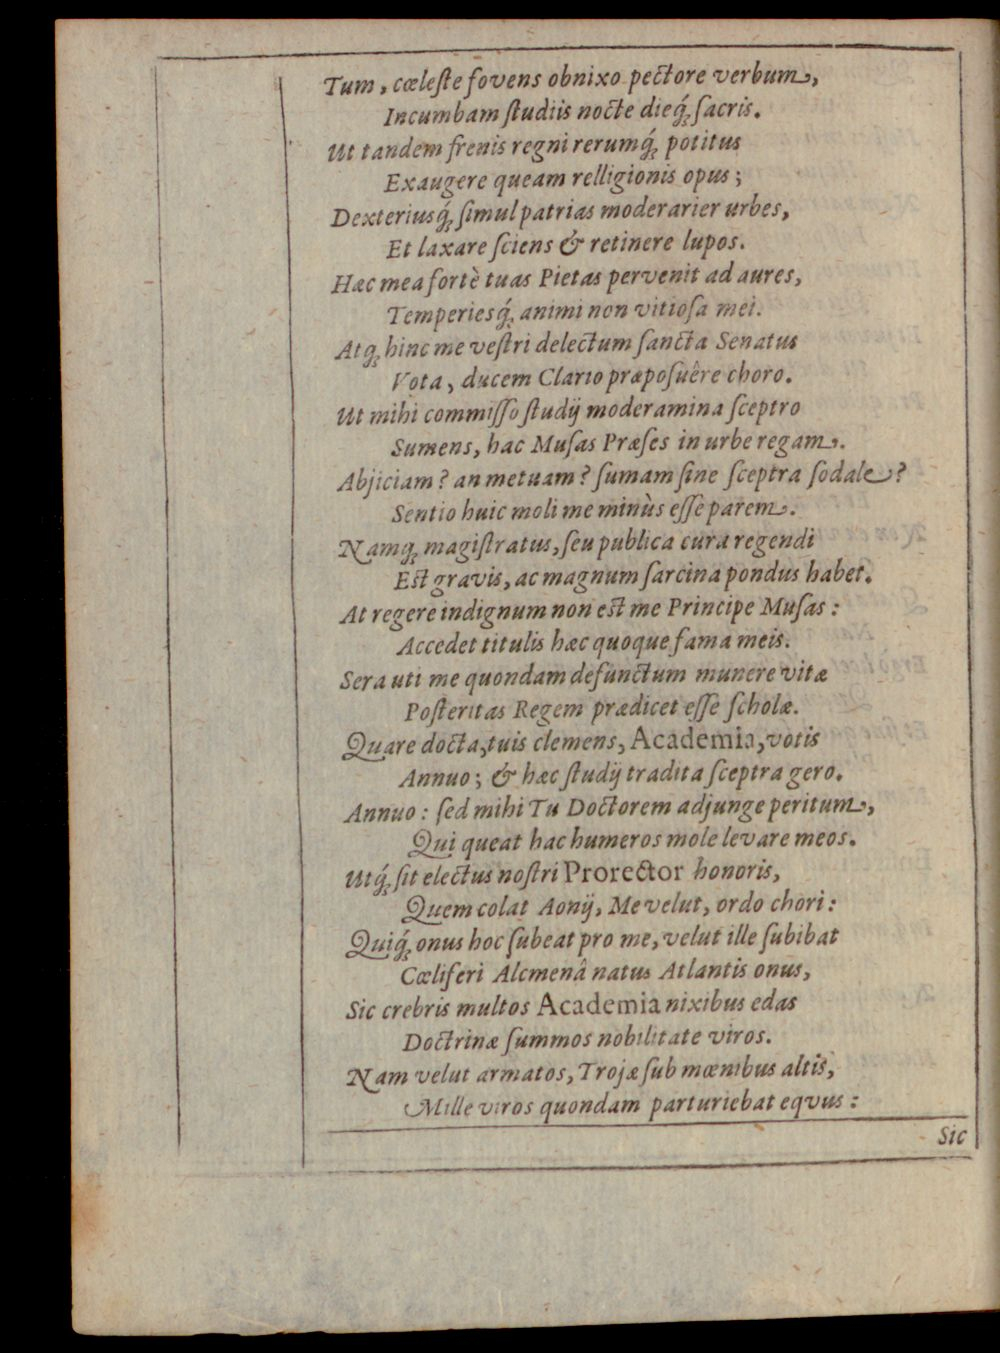 Tum, cœleſte fovens obnixo pectore verbum,
Incumbam ſtudiis nocte dieq́; ſacris.
Ut tandem frenis regni rerumq́; potitus
Exaugere queam relligionis opus;
Dexteriusq́; ſimul patrias moderarier urbes,
Et laxare ſciens & retinere lupos.
Hæc mea fortè tuas Pietas pervenit ad aures,
Temperiesq́; animi non vitioſa mei.
Atq; hinc me veſtri delectum ſancta Senatus
Vota, ducem Clario præpoſuêre choro.
Ut mihi commiſſo ſtudij moderamina ſceptro
Sumens, hac Muſas Præſes in urbe regam.
Abjiciam? an metuam? ſumam ſine ſceptra ſodale?
Sentio huic moli me minùs eſſe parem.
Namq; magiſtratus, ſeu publica cura regendi
Eſt gravis, ac magnum ſarcina pondus habet.
At regere indignum non eſt me Principe Muſas:
Accedet titulis hæc quoque fama meis.
Sera uti me quondam defunctum munere vitæ
Poſteritas Regem prædicet eſſe ſcholæ.
Quare docta, tuis clemens, Academia, votis
Annuo; & hæc ſtudij tradita ſceptra gero.
Annuo: ſed mihi Tu Doctorem adjunge peritum,
Qui queat hac humeros mole levare meos.
Utq́; ſit electus noſtri Prorector honoris,
Quem colat Aonij, Me velut, ordo chori:
Quiq́; onus hoc ſubeat pro me, velut ille ſubibat
Cœliferi Alcmenâ natus Atlantis onus,
Sic crebris multos Academia nixibus edas
Doctrinæ ſummos nobilitate viros.
Nam velut armatos, Trojæ ſub mœnibus altis,
Mille viros quondam parturiebat eqvus:
Sic